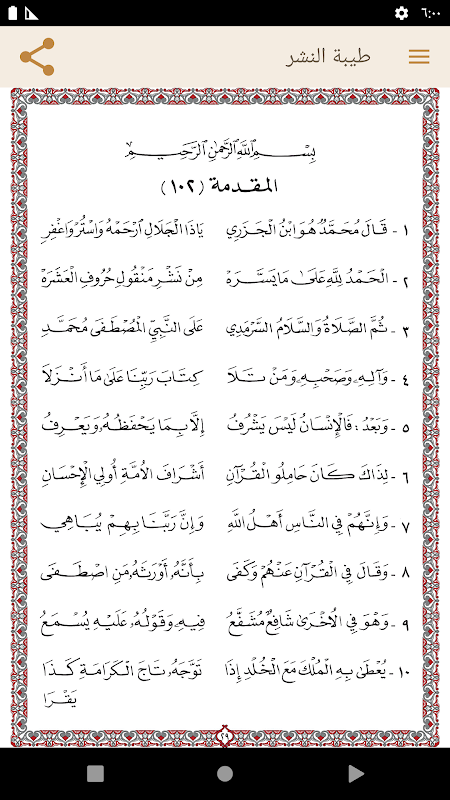 ٦:٠٠
طيبة النشر
بِسْمِ ٱللَّهِ ٱلرَّحْمَٰنِ ٱلرَّحِيمِ
المقدمة (١٠٢)
١ - قَالَ مُحَمَّدٌ هُوَ ابْنُ الْجَزَرِي يَاذَا الْجَلَالِ ارْحَمْهُ وَاسْتُرْ وَاغْفِرِ
٢ - الْحَمْدُ لِلَّهِ عَلَىٰ مَا يَسَّرَهْ مِنْ نَشْرِ مَنْقُولِ حُرُوفِ الْعَشَرَهْ
٣ - ثُمَّ الصَّلَاةُ وَالسَّلَامُ السَّرْمَدِي عَلَى النَّبِيِّ الْمُصْطَفَى مُحَمَّدِ
٤ - وَآلِهِ وَصَحْبِهِ وَمَنْ تَلَا كِتَابَ رَبِّنَا عَلَىٰ مَا أَنْزَلَا
٥ - وَبَعْدُ: فَالْإِنْسَانُ لَيْسَ يَشْرُفُ إِلَّا بِمَا يَحْفَظُهُ وَيَعْرِفُ
٦ - لِذَاكَ كَانَ حَامِلُو الْقُرْآنِ أَشْرَافَ الْأُمَّةِ أُولِي الْإِحْسَانِ
٧ - وَإِنَّهُمْ فِي النَّاسِ أَهْلُ اللَّهِ وَإِنَّ رَبَّنَا بِهِمْ يُبَاهِي
٨ - وَقَالَ فِي الْقُرْآنِ عَنْهُمْ وَكَفَى بِأَنَّهُ أَوْرَثَهُ مَنِ اصْطَفَى
٩ - وَهْوَ فِي الْأُخْرَىٰ شَافِعٌ مُشَفَّعُ فِيهِ وَقَوْلُهُ عَلَيْهِ يُسْمَعُ
١٠ - يُعْطَىٰ بِهِ الْمُلْكَ مَعَ الْخُلْدِ إِذَا تَوَّجَهُ تَاجَ الْكَرَامَةِ كَذَا
يَقْرَا
٢٩